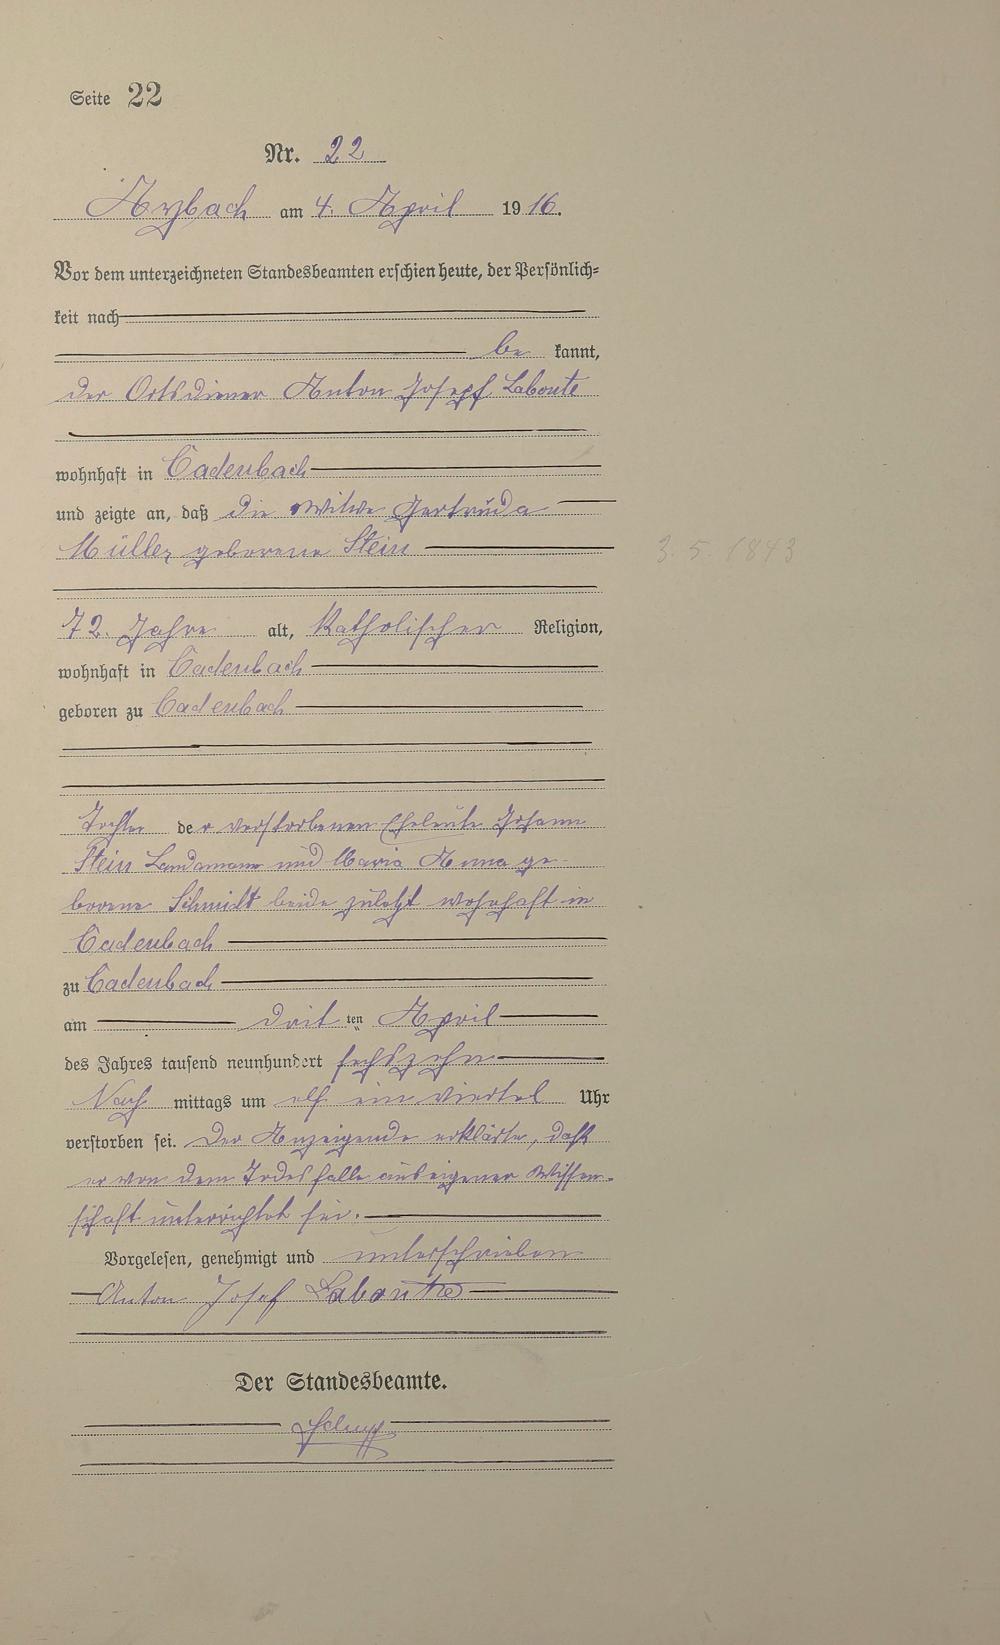 Seite 22
Nr. 22
Arzbach am 4. April 1916.
Vor dem unterzeichneten Standesbeamten erschien heute, der Persönlich=
keit nach
be kannt,
der Ortsdiener Anton Josepf Labonte
wohnhaft in Cadenbach
und zeigte an, daß die Witwe Gertruda
Müller geborene Stein
3. 5. 1843
72. Jahre alt, Katholischer Religion,
wohnhaft in Cadenbach
geboren zu Cadenbach
Tochter der verstorbenen Eheleute Johann
Stein Landmann und Maria Anna ge-
borene Schmidt beide zuletzt wohnhaft in
Cadenbach
zu Cadenbach
am drit ten April
des Jahres tausend neunhundert sechszehn
Nach mittags um elf ein viertel Uhr
verstorben sei. Der Anzeigende erklärte, daß
er von dem Todesfalle aus eigener Wissen-
schaft unterrichtet sei.
Vorgelesen, genehmigt und unterschrieben
Anton Josef
Der Standesbeamte.